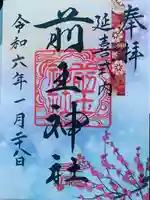 奉拝
延喜式内
前玉神社
令和六年一月二十八日